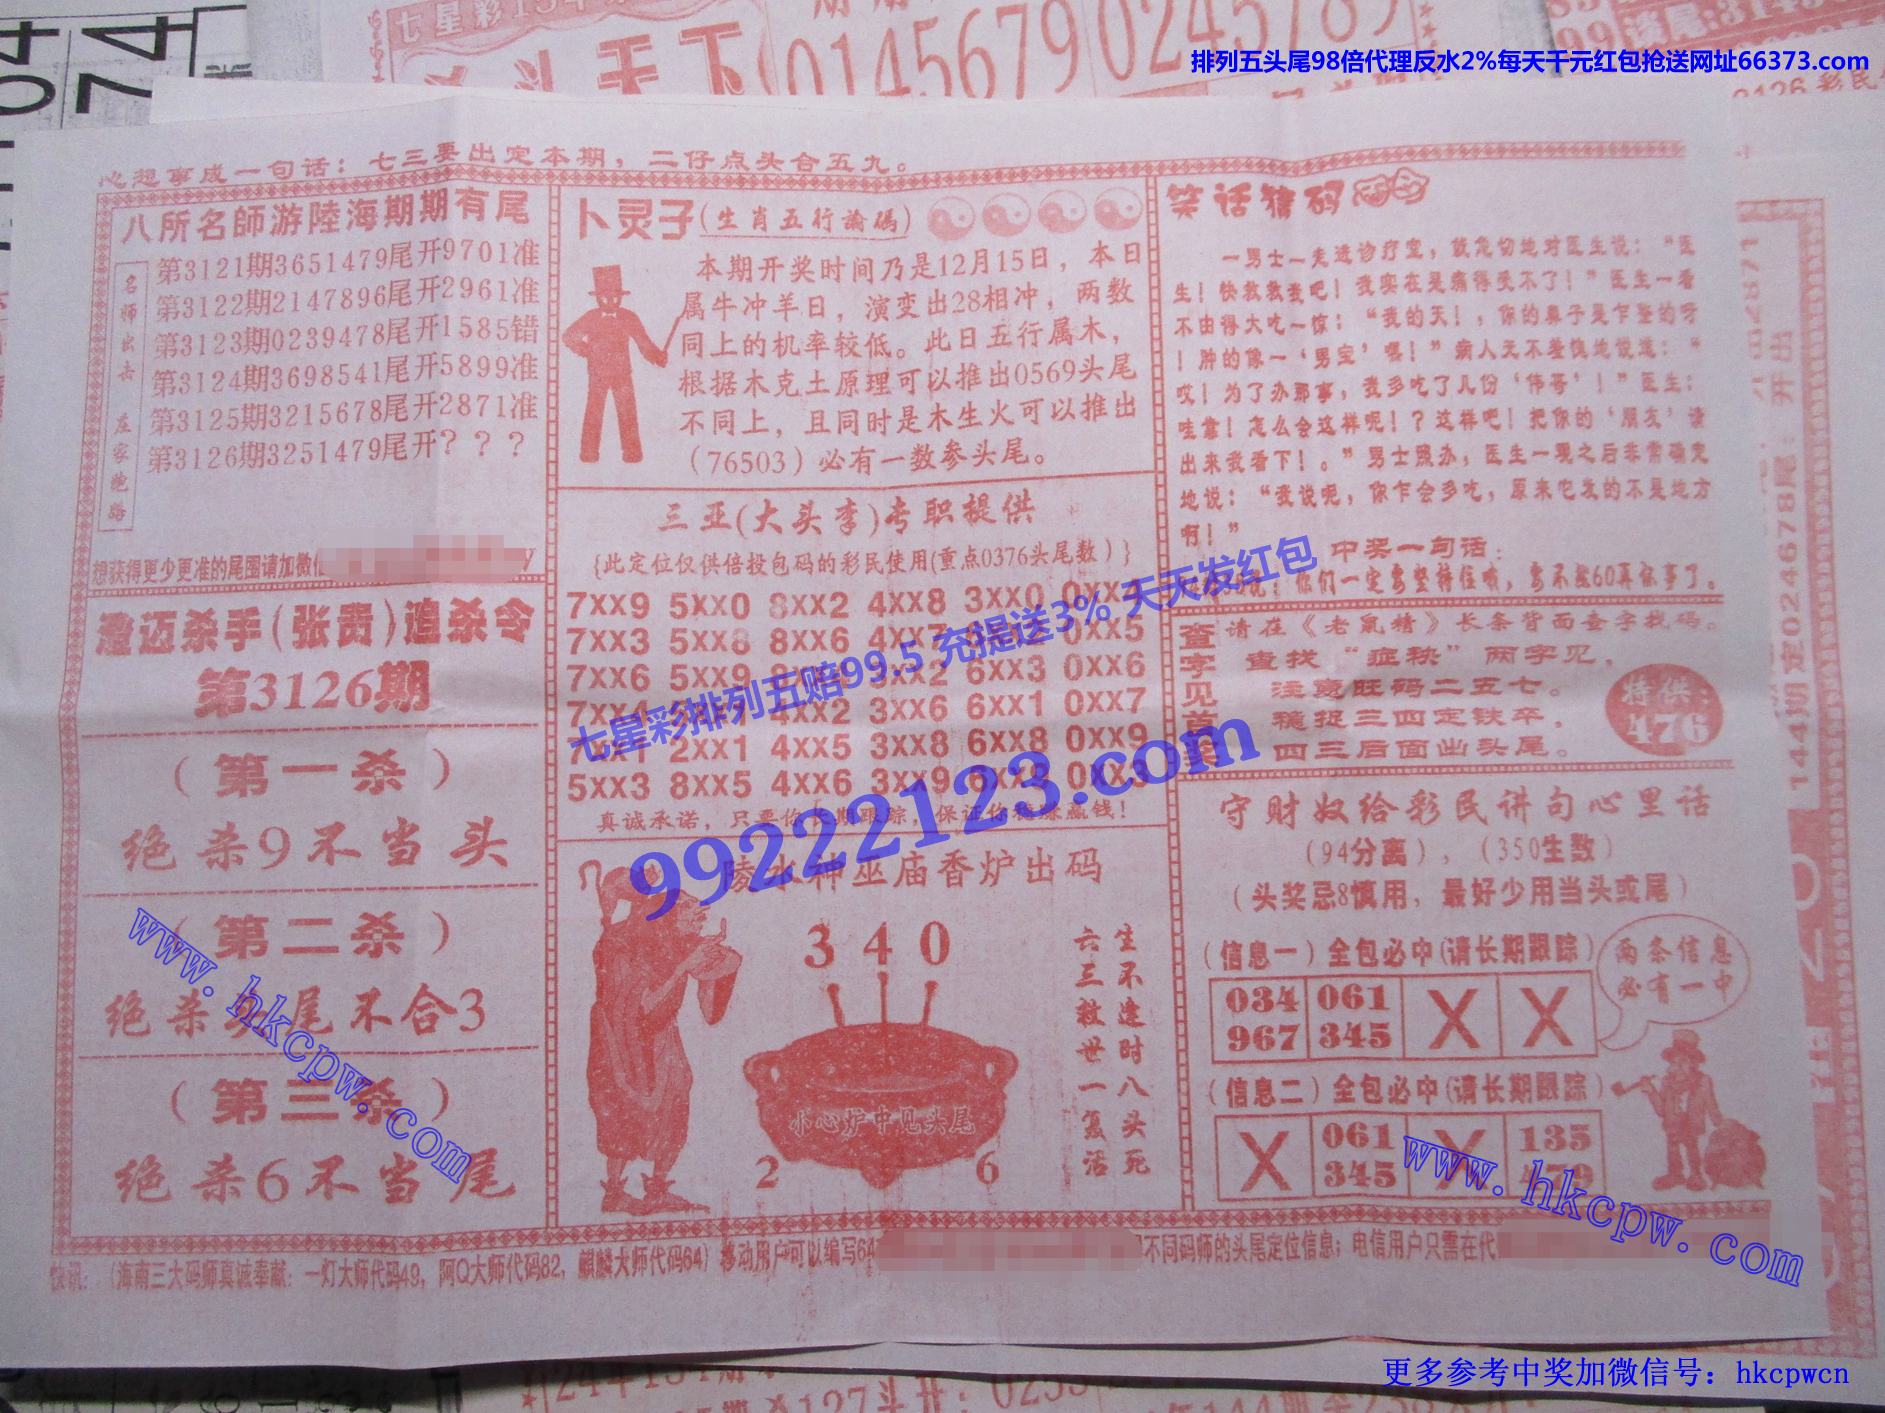 七星彩
0145679
0245789
排列五头尾98倍代理反水2%每天千元红包抢送网址66373.com
心想事成一句话：七三要出定本期，二仔点头合五九。
八所名師游陸海期期有尾
名师出击 左家跑路
第3121期3651479尾开9701准
第3122期2147896尾开2961准
第3123期0239478尾开1585错
第3124期3698541尾开5899准
第3125期3215678尾开2871准
第3126期3251479尾开？？？
想获得更少更准的尾围请加微信
澄迈杀手(张贵)追杀令
第3126期
（第一杀）
绝杀9不当头
（第二杀）
绝杀头尾不合3
（第三杀）
绝杀6不当尾
卜灵子(生肖五行論碼)
本期开奖时间乃是12月15日，本日
属牛冲羊日，演变出28相冲，两数
同上的机率较低。此日五行属木，
根据木克土原理可以推出0569头尾
不同上，且同时是木生火可以推出
（76503）必有一数参头尾。
三亚(大头李)专职提供
{此定位仅供倍投包码的彩民使用(重点0376头尾数）}
7xx9 5xx0 8xx2 4xx8 3xx0
7xx3 5xx8 8xx6 4xx7 0xx5
7xx6 5xx9 6xx3 0xx6
4xx2 3xx6 6xx1 0xx7
7xx1 2xx1 4xx5 3xx8 6xx8 0xx9
5xx3 8xx5 4xx6 3xx9 6xx9 0xx3
真诚承诺，只要你长期跟踪，保证你稳赚赢钱！
陵水神巫庙香炉出码
340
生不逢时八头死
六三救世一复活
小心炉中见头尾
2 6
笑话猜码
一男士一走进诊疗室，就急切地对医生说：“医
生！快救救我吧！我实在是痛得受不了！”医生一看
不由得大吃一惊：“我的天！，你的鼻子是乍整的呀
！肿的像一‘男宝’喂！”病人无不羞愧地说道：“
哎！为了办那事，我多吃了几份‘伟哥’！”医生：
哇靠！怎么会这样呢！？这样吧！把你的‘朋友’请
出来我看下！。”男士照办，医生一观之后非常确定
地说：“我说呢，你乍会多吃，原来它发的不是地方
啊！”
中奖一句话：
你们一定要坚持住哨，要不找60再休事了。
查字见首尾
请在《老鼠精》长条背面查字找码。
查找“症秧”两字见，
注意旺码二五七。
稳捉三四定铁卒，
四三后面出头尾。
特供：
476
守财奴给彩民讲句心里话
（94分离），（350生数）
（头奖忌8慎用，最好少用当头或尾）
（信息一）全包必中(请长期跟踪）
034 061 X X
967 345
两条信息
必有一中
（信息二）全包必中(请长期跟踪）
X 061 X 135
345 479
快讯：（海南三大码师真诚奉献：一灯大师代码49，阿Q大师代码82，麒麟大师代码64）移动用户可以编写64
不同码师的头尾定位信息；电信用户只需在代
144期定024678尾：开出
七星彩排列五赔99.5 充提送3% 天天发红包
99222123.com
www.hkcpw.com
www.hkcpw.com
更多参考中奖加微信号：hkcpwcn